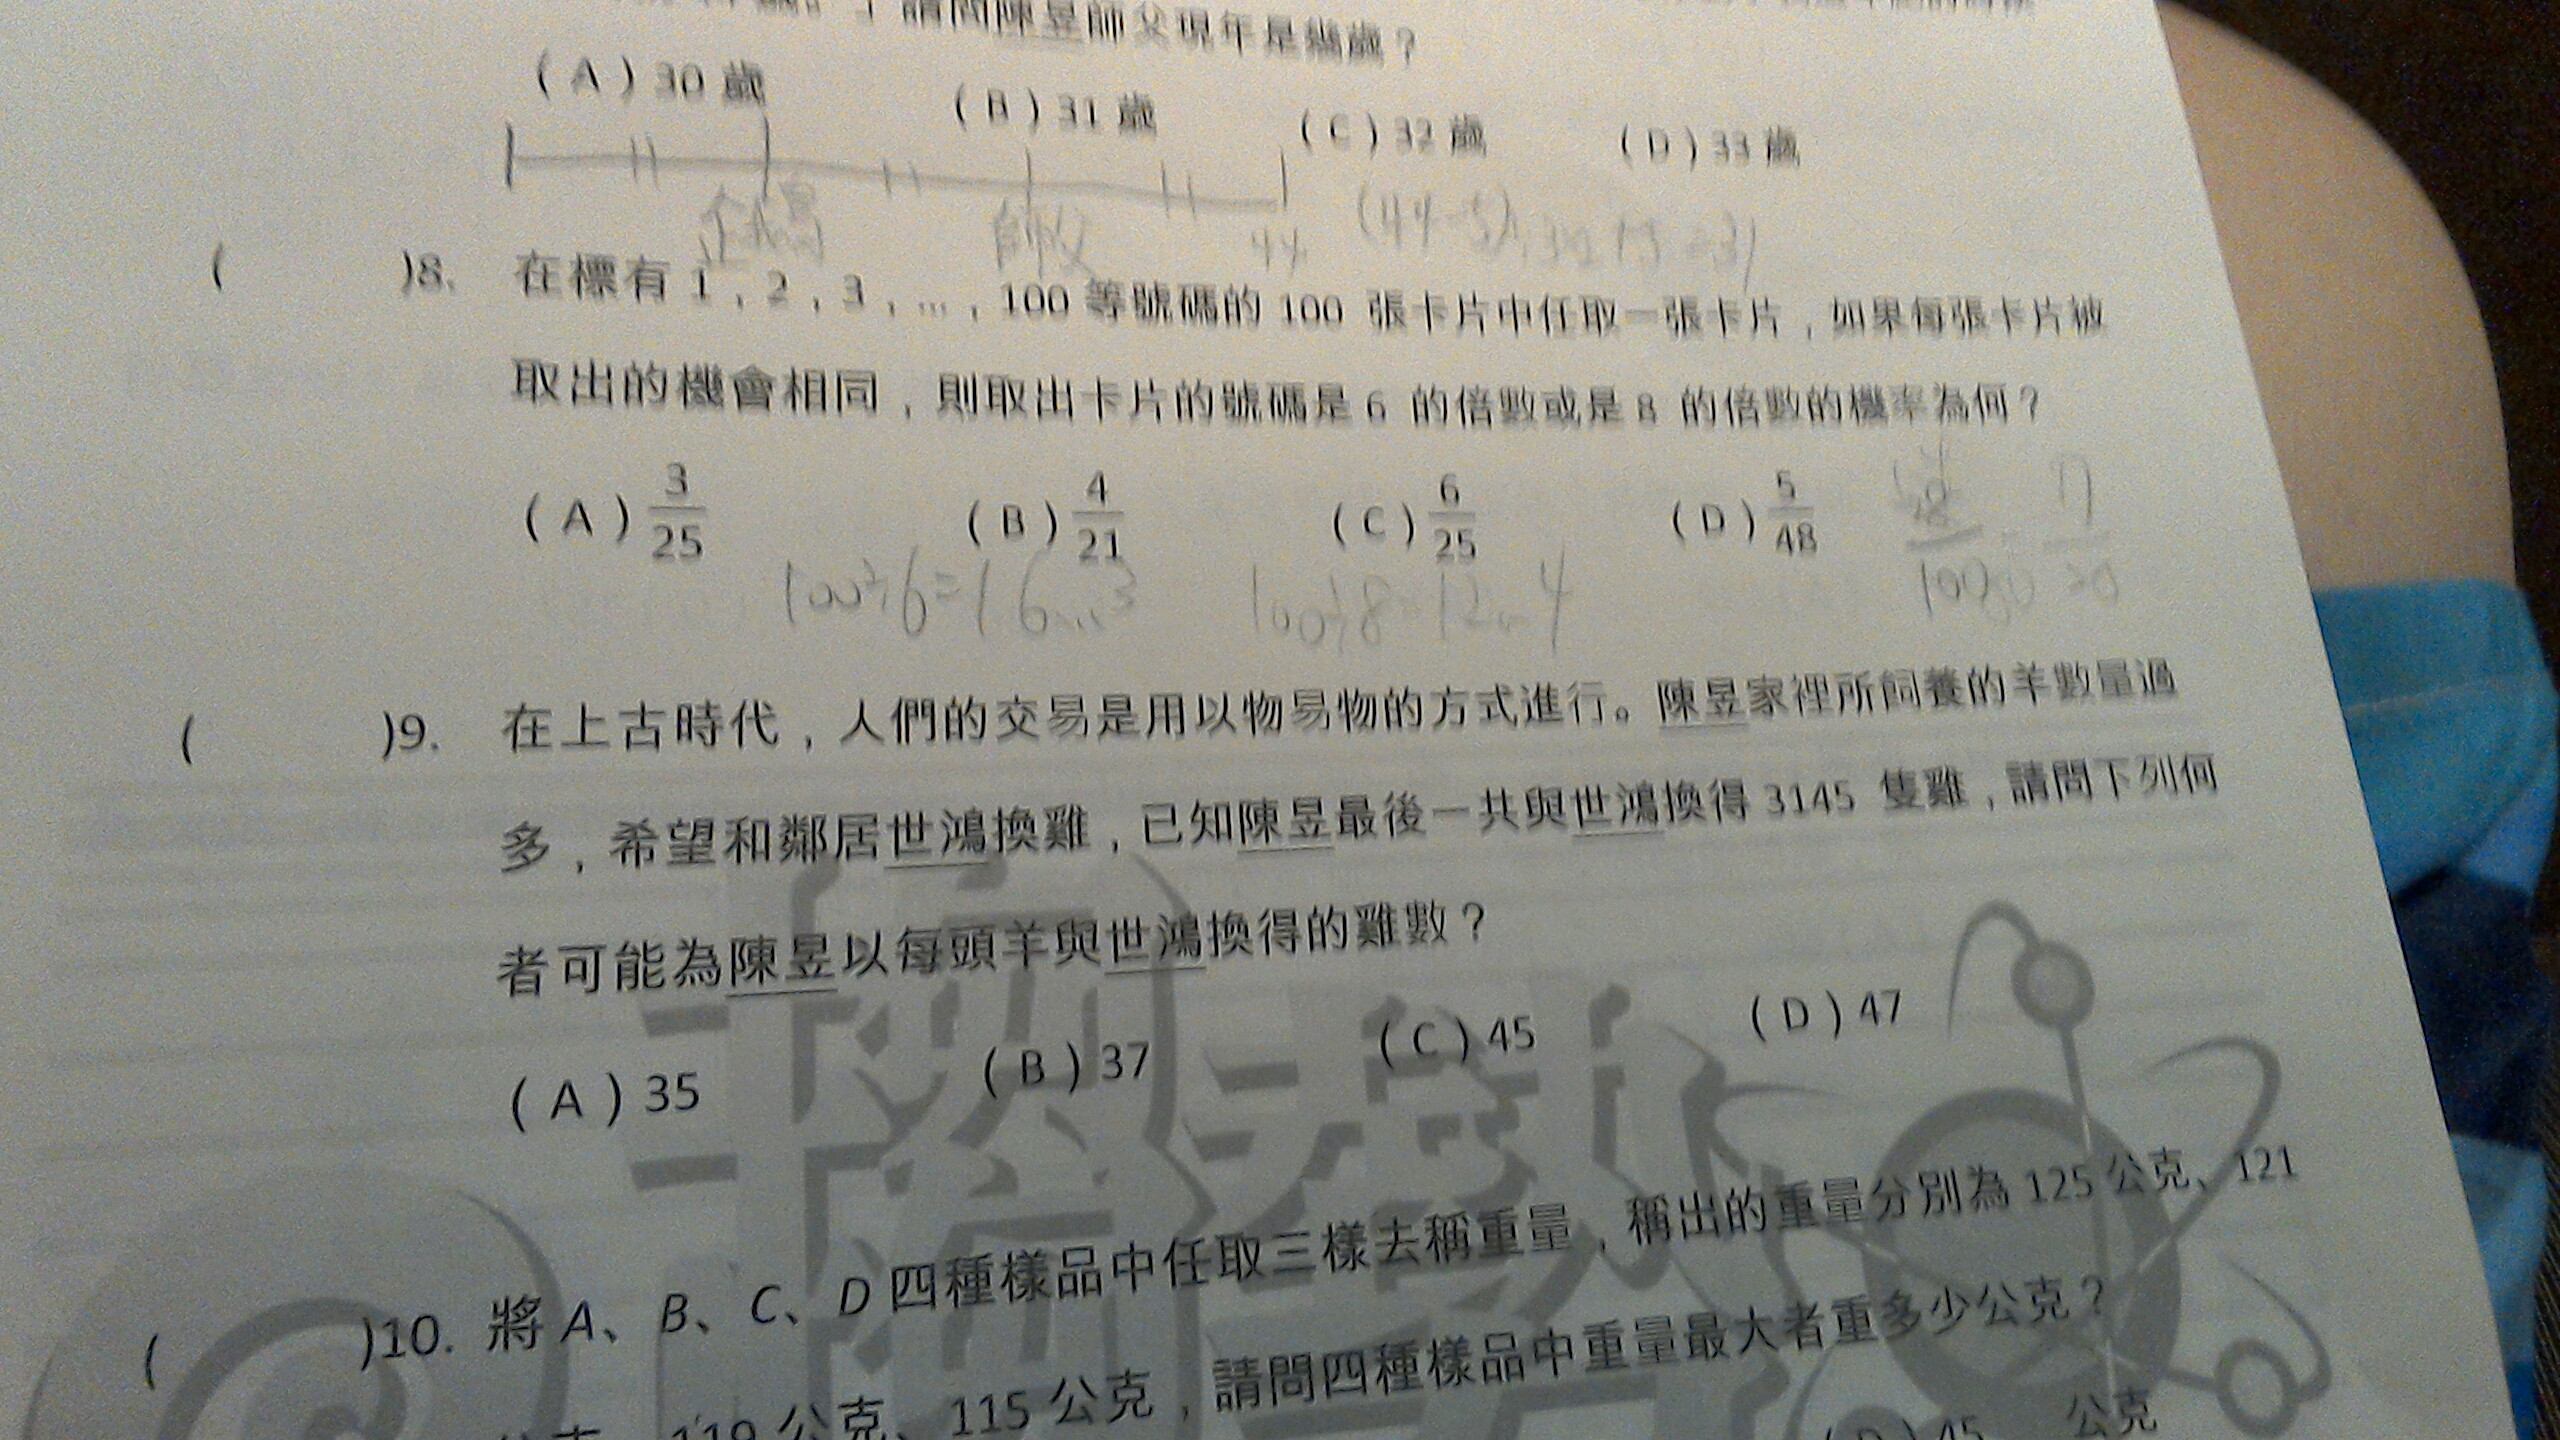 請問陳昱師父現年是幾歲？
(A) 30 歲 (B) 31 歲 (C) 32 歲 (D) 33 歲
師父 44
( )8. 在標有 1，2，3，…，100 等號碼的 100 張卡片中任取一張卡片，如果每張卡片被
取出的機會相同，則取出卡片的號碼是 6 的倍數或是 8 的倍數的機率為何？
(A) 3/25 (B) 4/21 (C) 6/25 (D) 5/48
100÷6=16...3 100÷8=12...4
( )9. 在上古時代，人們的交易是用以物易物的方式進行。陳昱家裡所飼養的羊數量過
多，希望和鄰居世鴻換雞，已知陳昱最後一共與世鴻換得 3145 隻雞，請問下列何
者可能為陳昱以每頭羊與世鴻換得的雞數？
(A) 35 (B) 37 (C) 45 (D) 47
( )10. 將 A、B、C、D 四種樣品中任取三樣去稱重量，稱出的重量分別為 125 公克、121
公克、119 公克、115 公克，請問四種樣品中重量最大者重多少公克？
(D) 45 公克